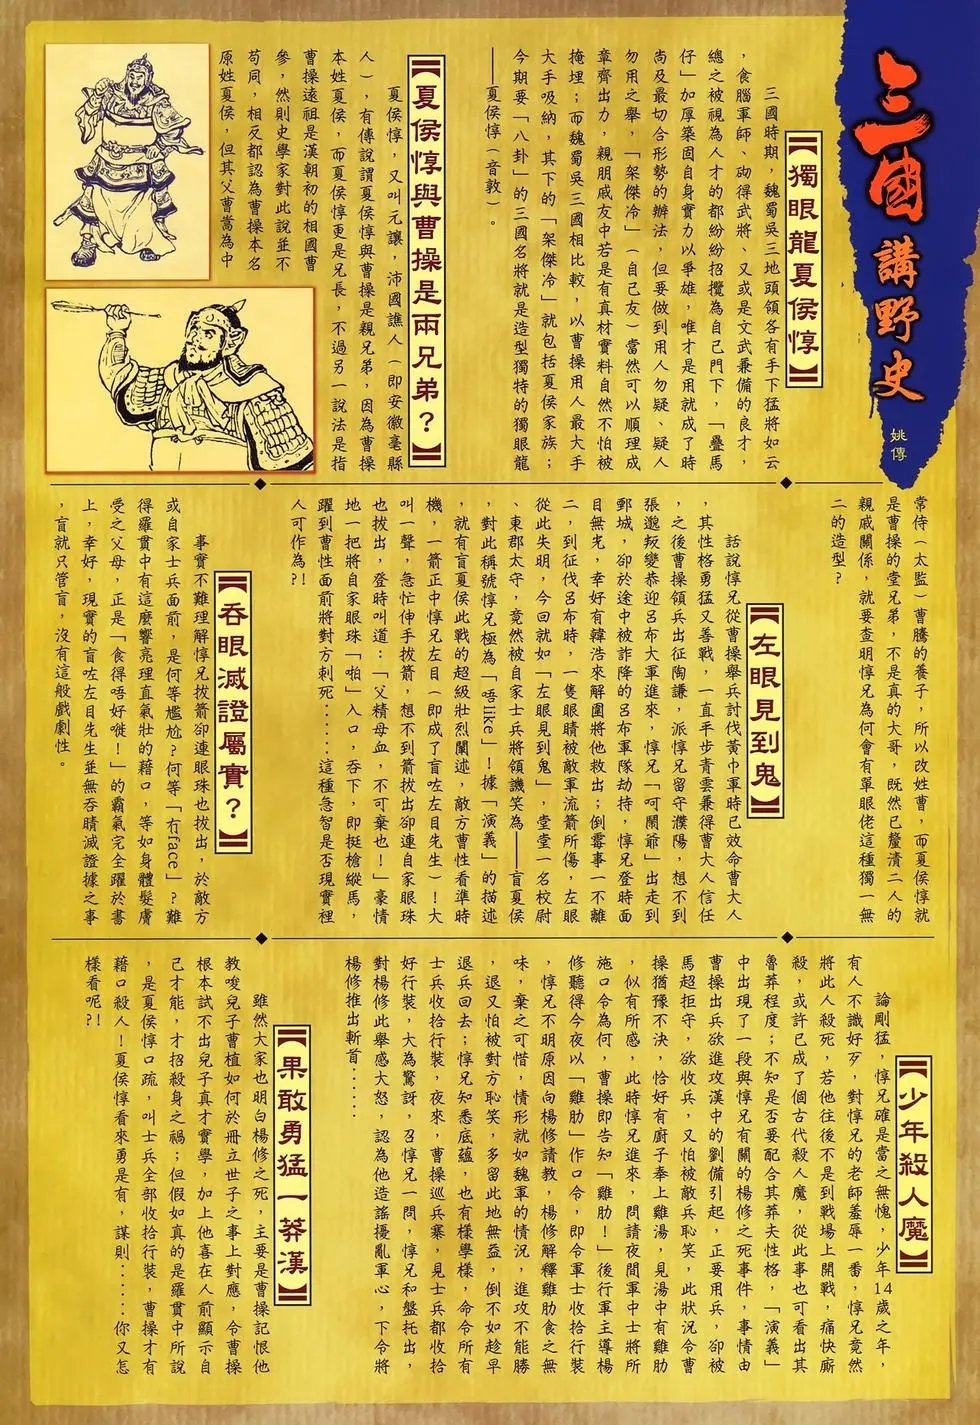 三國講野史
姚傳
【獨眼龍夏侯惇】
三國時期，魏蜀吳三地頭領各有手下猛將如云
，食腦軍師、砌得武將、又或是文武兼備的良才，
總之被視為人才的都紛紛招攬為自己門下，「疊馬
仔」加厚築固自身實力以爭雄，唯才是用就成了時
尚及最切合形勢的辦法，但要做到用人勿疑、疑人
勿用之舉，「架傑冷」（自己友）當然可以順理成
章齊出力，親朋戚友中若是有真材實料自然不怕被
掩埋；而魏蜀吳三國相比較，以曹操用人最大手
大手吸納，其下的「架傑冷」就包括夏侯家族；
今期要「八卦」的三國名將就是造型獨特的獨眼龍
——夏侯惇（音敦）。
【夏侯惇與曹操是兩兄弟？】
夏侯惇，又叫元讓，沛國譙人（即安徽亳縣
人），有傳說謂夏侯惇與曹操是親兄弟，因為曹操
本姓夏侯，而夏侯惇更是兄長，不過另一說法是指
曹操遠祖是漢朝初的相國曹
參，然則史學家對此說並不
苟同，相反都認為曹操本名
原姓夏侯，但其父曹嵩為中
常侍（太監）曹騰的養子，所以改姓曹，而夏侯惇就
是曹操的堂兄弟，不是真的大哥，既然已釐清二人的
親戚關係，就要查明惇兄為何會有單眼佬這種獨一無
二的造型？
【左眼見到鬼】
話說惇兄從曹操舉兵討伐黃巾軍時已效命曹大人
，其性格勇猛又善戰，一直平步青雲兼得曹大人信任
，之後曹操領兵出征陶謙，派惇兄留守濮陽，想不到
張邈叛變恭迎呂布大軍進來，惇兄「呵鬧爺」出走到
鄄城，卻於途中被詐降的呂布軍隊劫持，惇兄登時面
目無光，幸好有韓浩來解圍將他救出；倒霉事一不離
二，到征伐呂布時，一隻眼睛被敵軍流箭所傷，左眼
從此失明，今回就如「左眼見到鬼」，堂堂一名校尉
、東郡太守，竟然被自家士兵將領譏笑為——盲夏侯
，對此稱號惇兄極為「唔like」！據「演義」的描述
，就有盲夏侯此戰的超級壯烈闡述，敵方曹性看準時
機，一箭正中惇兄左目（即成了盲咗左目先生）！大
叫一聲，急忙伸手拔箭，想不到箭拔出卻連自家眼珠
也拔出，登時叫道：「父精母血，不可棄也！」豪情
地一把將自家眼珠「啪」入口，吞下，即挺槍縱馬，
躍到曹性面前將對方刺死……這種急智是否現實裡
人可作為？！
【吞眼滅證屬實？】
事實不難理解惇兄拔箭卻連眼珠也拔出，於敵方
或自家士兵面前，是何等尷尬？何等「冇face」？難
得羅貫中有這麼響亮理直氣壯的藉口，等如身體髮膚
受之父母，正是「食得唔好嘥！」的霸氣完全躍於書
上，幸好，現實的盲咗左目先生並無吞睛滅證據之事
，盲就只管盲，沒有這般戲劇性。
【少年殺人魔】
論剛猛，惇兄確是當之無愧，少年14歲之年，
有人不識好歹，對惇兄的老師羞辱一番，惇兄竟然
將此人殺死，若他往後不是到戰場上開戰，痛快廝
殺，或許已成了個古代殺人魔，從此事也可看出其
魯莽程度；不知是否要配合其莽夫性格，「演義」
中出現了一段與惇兄有關的楊修之死事件，事情由
曹操出兵欲進攻漢中的劉備引起，正要用兵，卻被
馬超拒守，欲收兵，又怕被敵兵恥笑，此狀況令曹
操猶豫不決，恰好有廚子奉上雞湯，見湯中有雞肋
，似有所感，此時惇兄進來，問請夜間軍中士將所
施口令為何，曹操即告知「雞肋！」後行軍主導楊
修聽得今夜以「雞肋」作口令，即令軍士收拾行裝
，惇兄不明原因向楊修請教，楊修解釋雞肋食之無
味，棄之可惜，情形就如魏軍的情況，進攻不能勝
，退又怕被對方恥笑，多留此地無益，倒不如趁早
退兵回去；惇兄知悉底蘊，也有樣學樣，命令所有
士兵收拾行裝，夜來，曹操巡兵寨，見士兵都收拾
好行裝，大為驚訝，召惇兄一問，惇兄和盤托出，
對楊修此舉感大怒，認為他造謠擾亂軍心，下令將
楊修推出斬首……
【果敢勇猛一莽漢】
雖然大家也明白楊修之死，主要是曹操記恨他
教唆兒子曹植如何於冊立世子之事上對應，令曹操
根本試不出兒子真才實學，加上他喜在人前顯示自
己才能，才招殺身之禍；但假如真的是羅貫中所說
，是夏侯惇口疏，叫士兵全部收拾行裝，曹操才有
藉口殺人！夏侯惇看來勇是有，謀則……你又怎
樣看呢？！